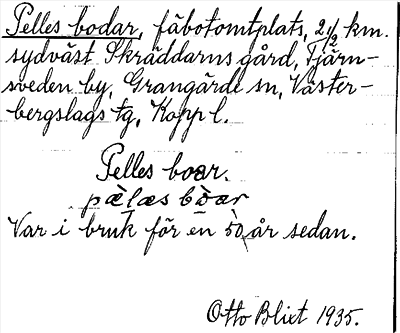 Pelles bodar, fäbotomtplats, 2 1/2 km.
sydväst Skräddarns gård, Tjärn-
sveden by, Grangärde sn, Väster-
bergslags tg, Kopp l.
Pelles boar.
pæ̀læs bòar
Var i bruk för en 50 år sedan.
Otto Blixt 1935.